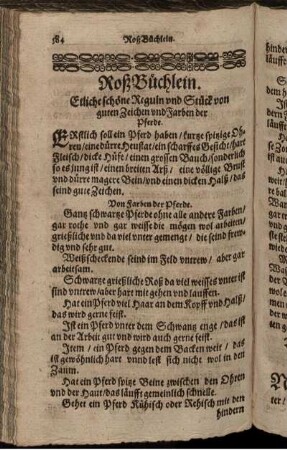 184 Roß Büchlein.
Roß Büchlein.
Etliche schöne Reguln vnd Stück von
guten Zeichen vnd Farben der
Pferde.
ERstlich soll ein Pferd haben / kurze spitzige Oh-
ren / eine dürre / ein scharffes Gesicht / hart
Fleisch / dicke Hüfe / einen grossen Bauch / sonderlich
so es jung ist / einen breiten Arß / eine völlige Brust
vnd dürre magere Bein / vnd einen dicken Halß / das
seind gute Zeichen.
Von Farben der Pferde.
Gantz schwartze Pferde ohne alle andere Farben /
gar rothe vnd gar weisse die mögen wol arbeiten /
grießliche vnd da viel vnter gemengt / die seind frew-
dig vnd sehr gut.
Weißscheckende seind im Feld vntrew / aber gar
arbeitsam.
Schwartz grießliche Roß da viel weisses vnter ist
sind vntrew / aber hart mit gehen vnd lauffen.
Hat ein Pferd viel Haar an dem Kopff vnd Halß /
das wird gerne feist.
Ist ein Pferd vnter dem Schwang enge / das ist
an der Arbeit gut vnd wird auch gerne feist.
Item / ein Pferd gegen dem Backen weit / das
ist gewöhnlich hart vnnd lest sich nicht wol in den
Zaum.
Hat ein Pferd spitze Beine zwischen den Ohren
vnd der Haut / das läufft gemeinlich schnelle.
Gehet ein Pferd Kühisch oder Rehisch mit den
hindern